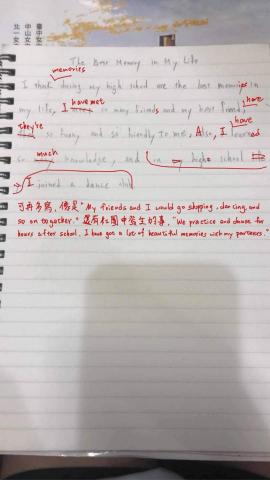 臺中女
中山女
北一女
The Best Memory in My Life
memories
I think during my high school are the best memories in
have met have
my life, I so many friends and my best friend,
they're have
so funny, and so friendly to me, Also, I learned
much
so knowledge, and in my high school
I joined a dance club
可再多寫，像是 "My friends and I would go shopping, dancing, and
so on together." 還有社團中發生的事, "We practice and dance for
hours after school. I have got a lot of beautiful memories with my partners."